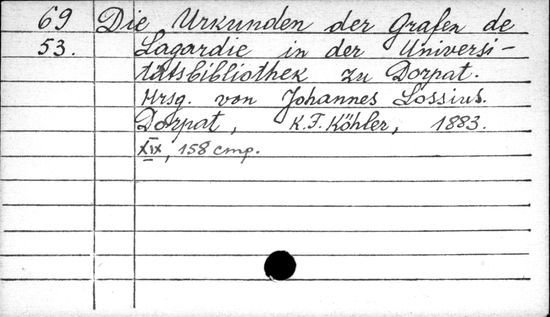 69 Die Urkunden der Grafen de
53. Lagardie in der Universi-
tätsbibliothek zu Dorpat.
Hrsg. von Johannes Lossius.
Dorpat, K.F. Köhler, 1883.
XIX, 158 стр.